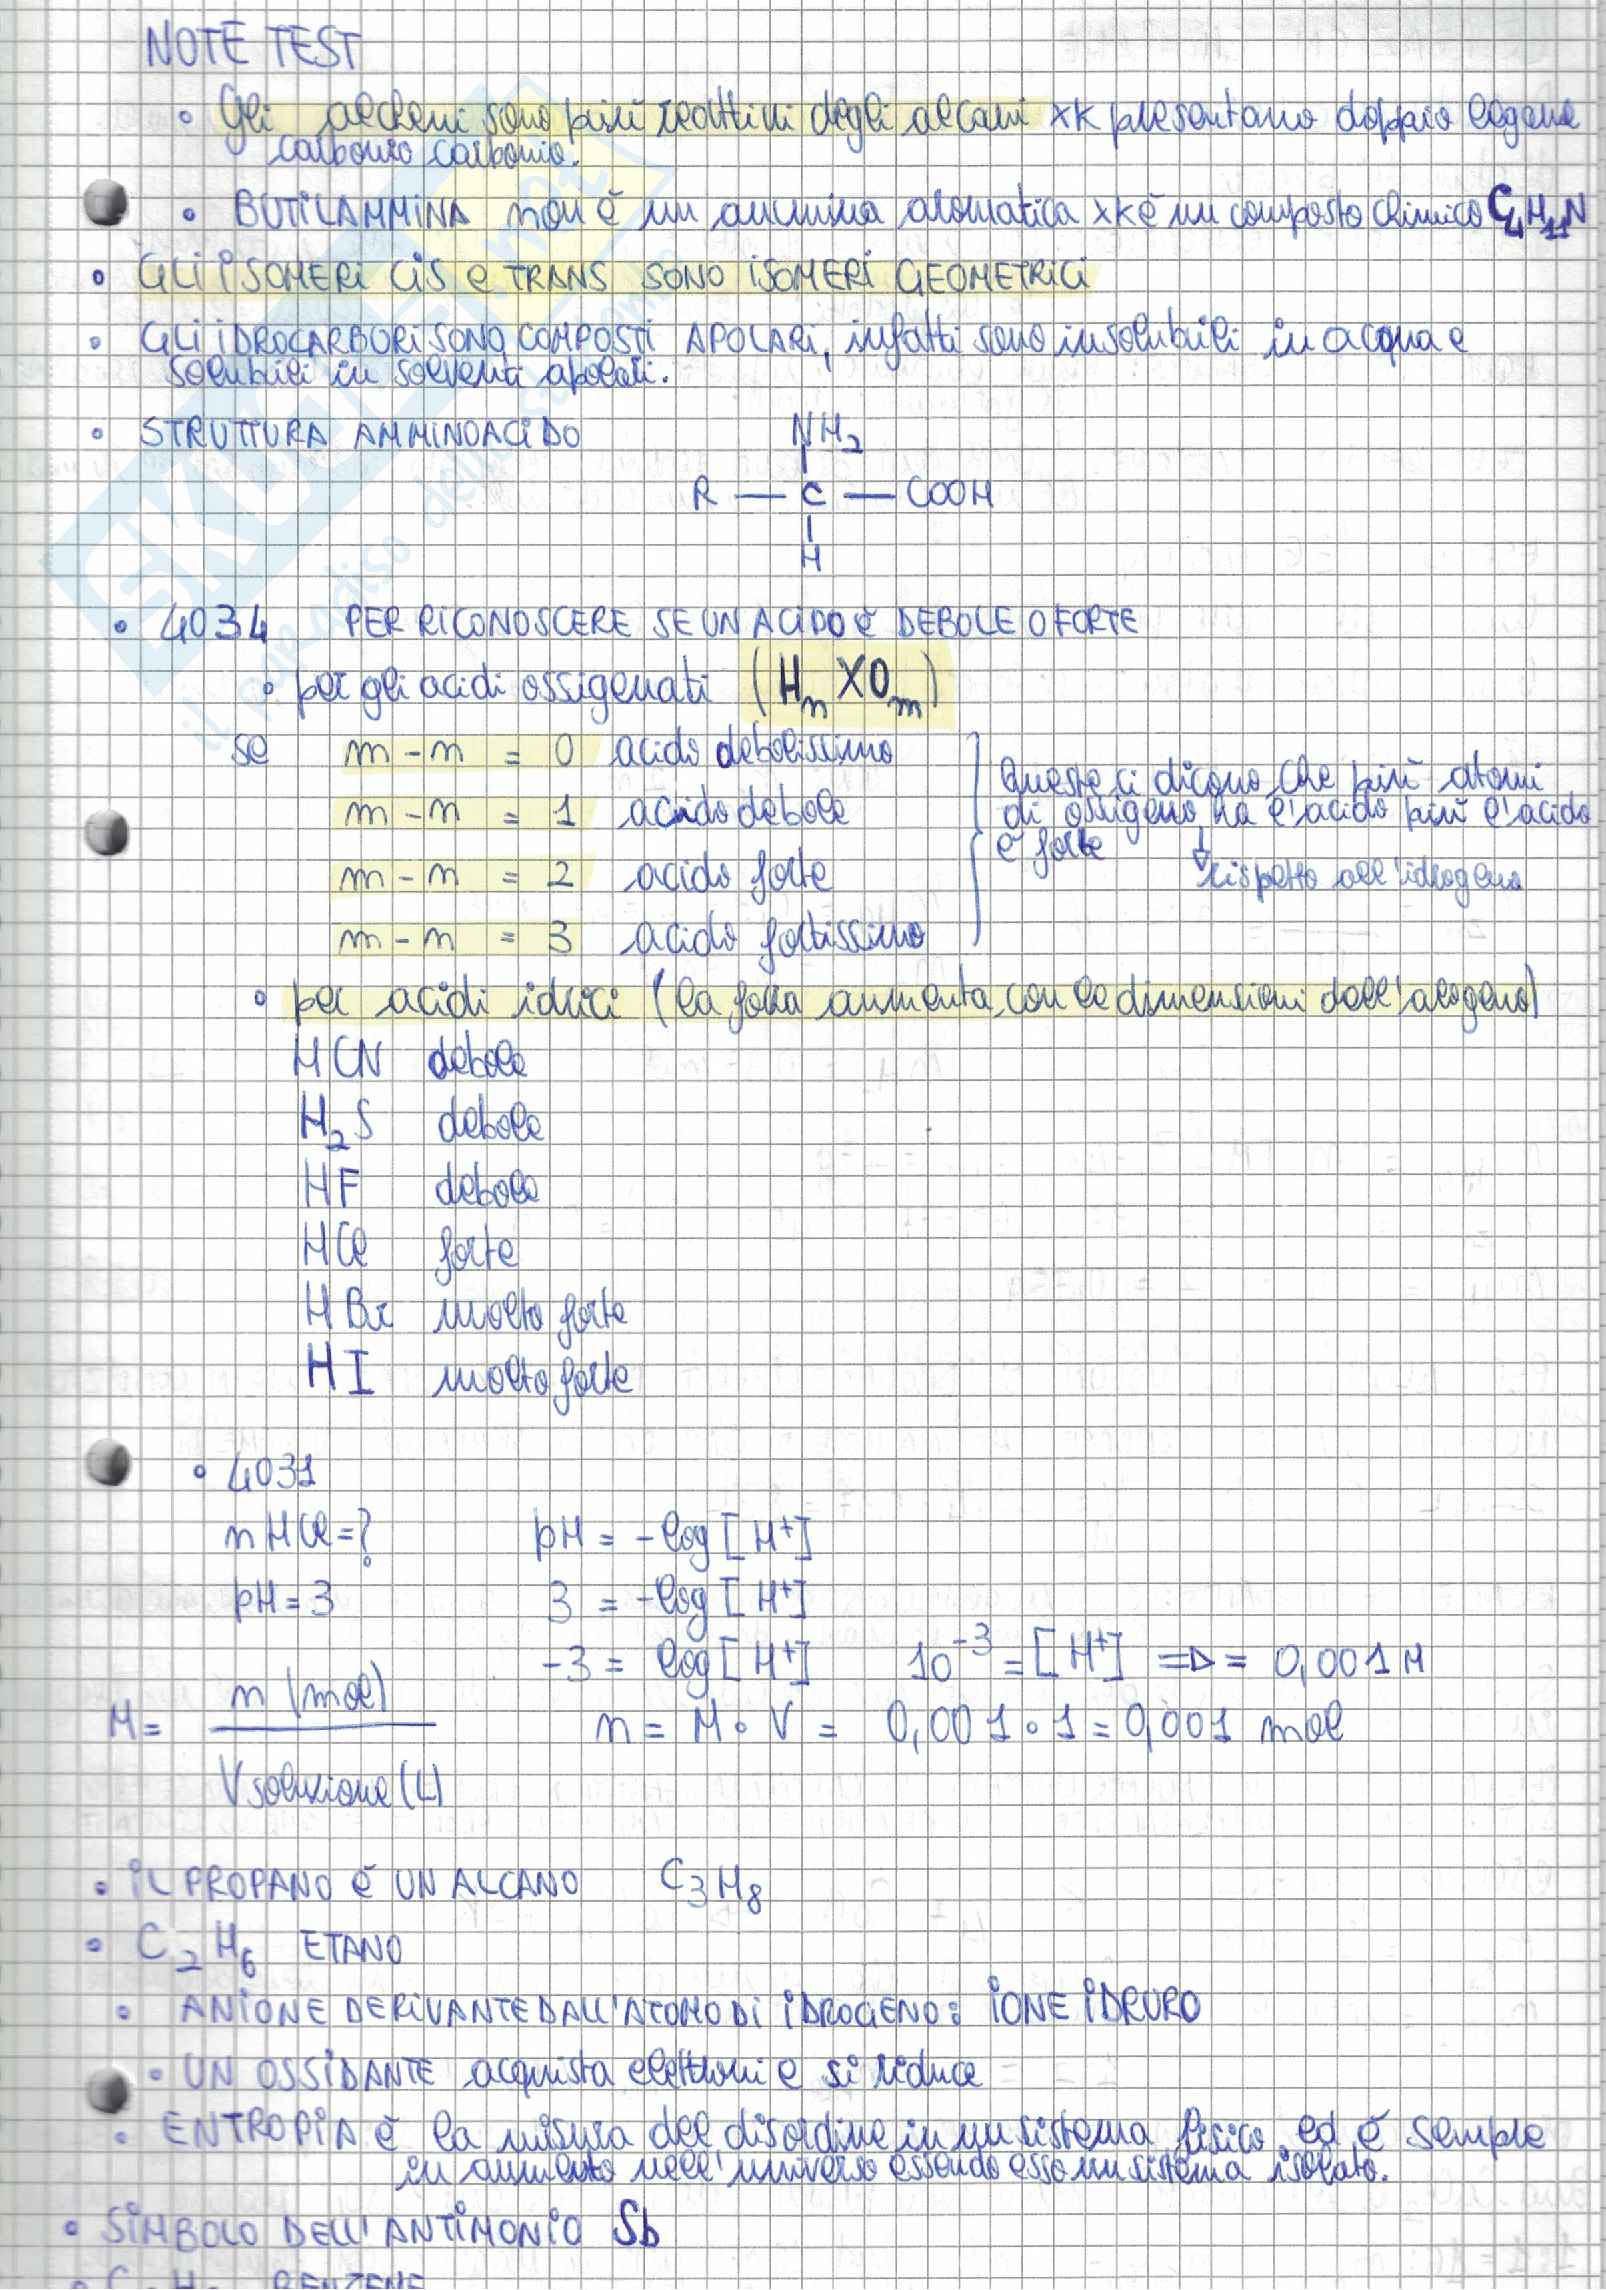 NOTE TEST
• Gli alcheni sono più reattivi degli alcani xk presentano doppio legame
carbonio carbonio.
• BUTILAMMINA non è un ammina aromatica xk è un composto chimico C₄H₁₁N
• GLI ISOMERI CIS e TRANS SONO ISOMERI GEOMETRICI
• GLI IDROCARBURI SONO COMPOSTI APOLARI, infatti sono insolubili in acqua e
solubili in solventi apolari.
• STRUTTURA AMMINOACIDO
NH₂
R — C — COOH
H
• 4034 PER RICONOSCERE SE UN ACIDO è DEBOLE O FORTE
• per gli acidi ossigenati (HnXOm)
se m - n = 0 acido debolissimo
m - n = 1 acido debole
m - n = 2 acido forte
m - n = 3 acido fortissimo
Queste ci dicono che più atomi
di ossigeno ha l'acido più l'acido
è forte
rispetto all'idrogeno
• per acidi idrici (la forza aumenta con le dimensioni dell'alogeno)
HCN debole
H₂S debole
HF debole
HCl forte
HBr molto forte
HI molto forte
• 4031
n HCl = ? pH = -log [H⁺]
pH = 3 3 = -log [H⁺]
-3 = log [H⁺] 10⁻³ = [H⁺] => = 0,001 M
M = n (mol) / V soluzione (L) n = M • V = 0,001 • 1 = 0,001 mol
• IL PROPANO è UN ALCANO C₃H₈
• C₂H₆ ETANO
• ANIONE DERIVANTE DALL'ATOMO DI IDROGENO: IONE IDRURO
• UN OSSIDANTE acquista elettroni e si riduce
• ENTROPIA è la misura del disordine in un sistema fisico, ed è sempre
in aumento nell'universo essendo esso un sistema isolato.
• SIMBOLO DELL'ANTIMONIO Sb
BENZENE
SKUOLA.net
il paradiso dello studente